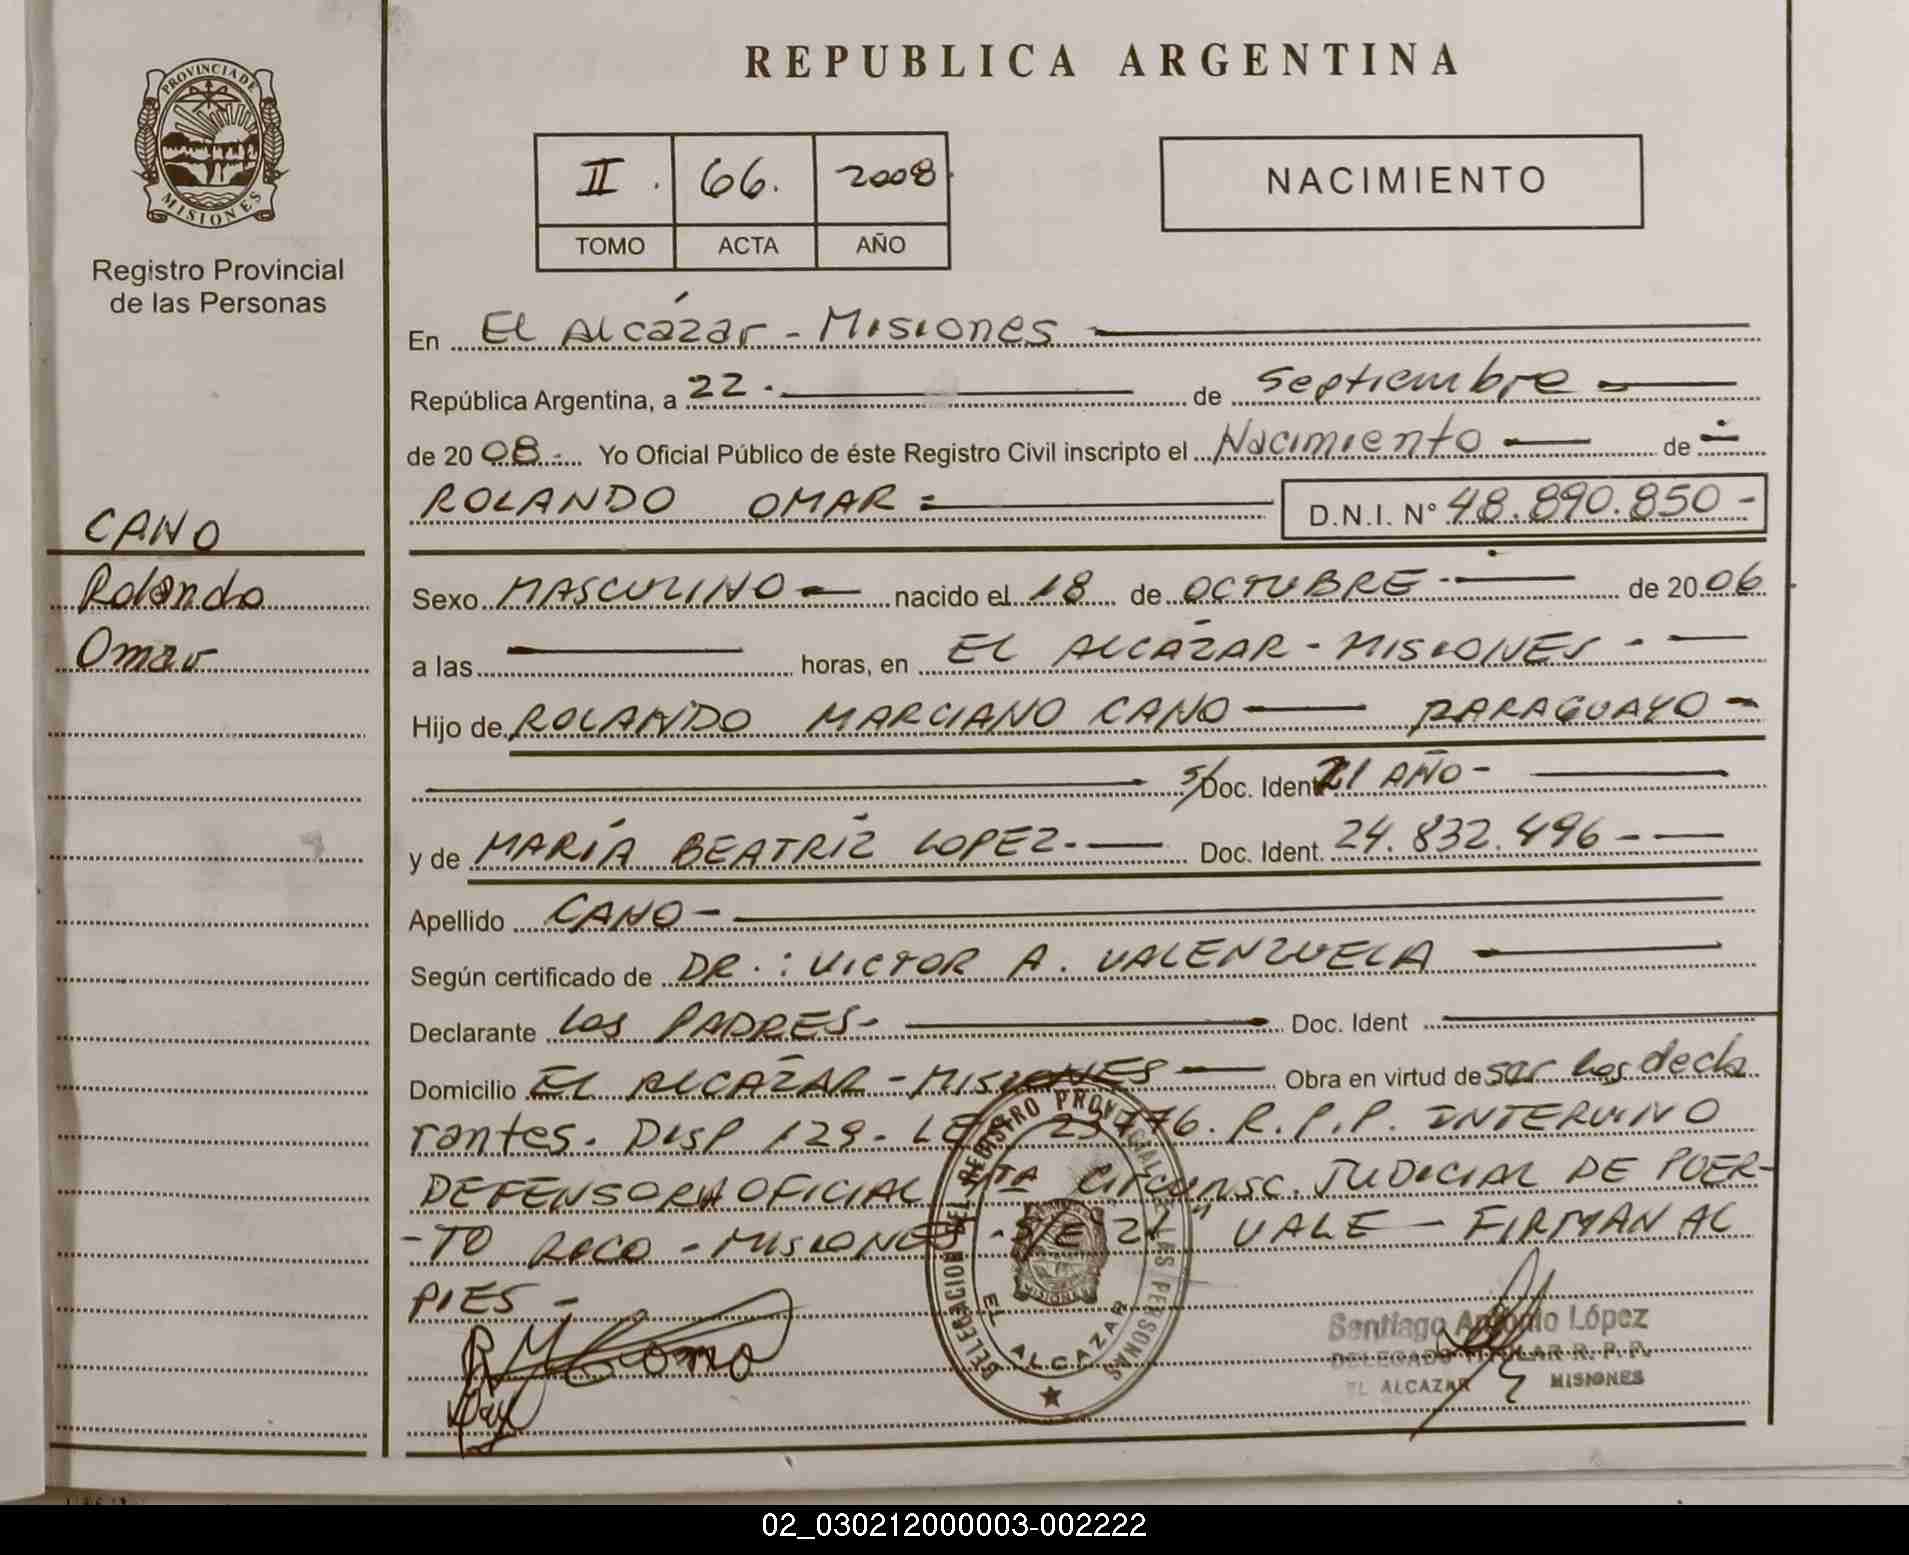 REPUBLICA ARGENTINA
PROVINCIA DE
MISIONES
Registro Provincial
de las Personas
II. 66. 2008.
TOMO ACTA AÑO
NACIMIENTO
En El Alcázar - Misiones
República Argentina, a 22 - de Septiembre
de 20 08 - Yo Oficial Público de éste Registro Civil inscripto el Nacimiento de
ROLANDO OMAR = D.N.I. N° 48.890.850 -
CANO
Rolando
Omar
Sexo MASCULINO - nacido el 18 de OCTUBRE - de 20 06
a las horas, en EL ALCÁZAR - MISIONES -
Hijo de ROLANDO MARCIANO CANO PARAGUAYO -
s/ Doc. Ident. 21 AÑO -
y de MARÍA BEATRÍZ LOPEZ - Doc. Ident. 24.832.496 -
Apellido CANO -
Según certificado de DR.: VICTOR A. VALENZUELA
Declarante LOS PADRES - Doc. Ident
Domicilio EL ALCÁZAR - MISIONES Obra en virtud de ser los decla
rantes. DISP 129 - 23776. R.P.P. INTERVINO
OFICIAL Circunsc. JUDICIAL DE PUER-
-TO RICO - MISIONES - S/E "21" VALE - FIRMAN AL
PIES -
DELEGACION DEL REGISTRO PROVINCIAL DE LAS PERSONAS
EL ALCAZAR
Santiago Antonio López
DELEGADO TITULAR R. P. P.
EL ALCAZAR MISIONES
02_030212000003-002222